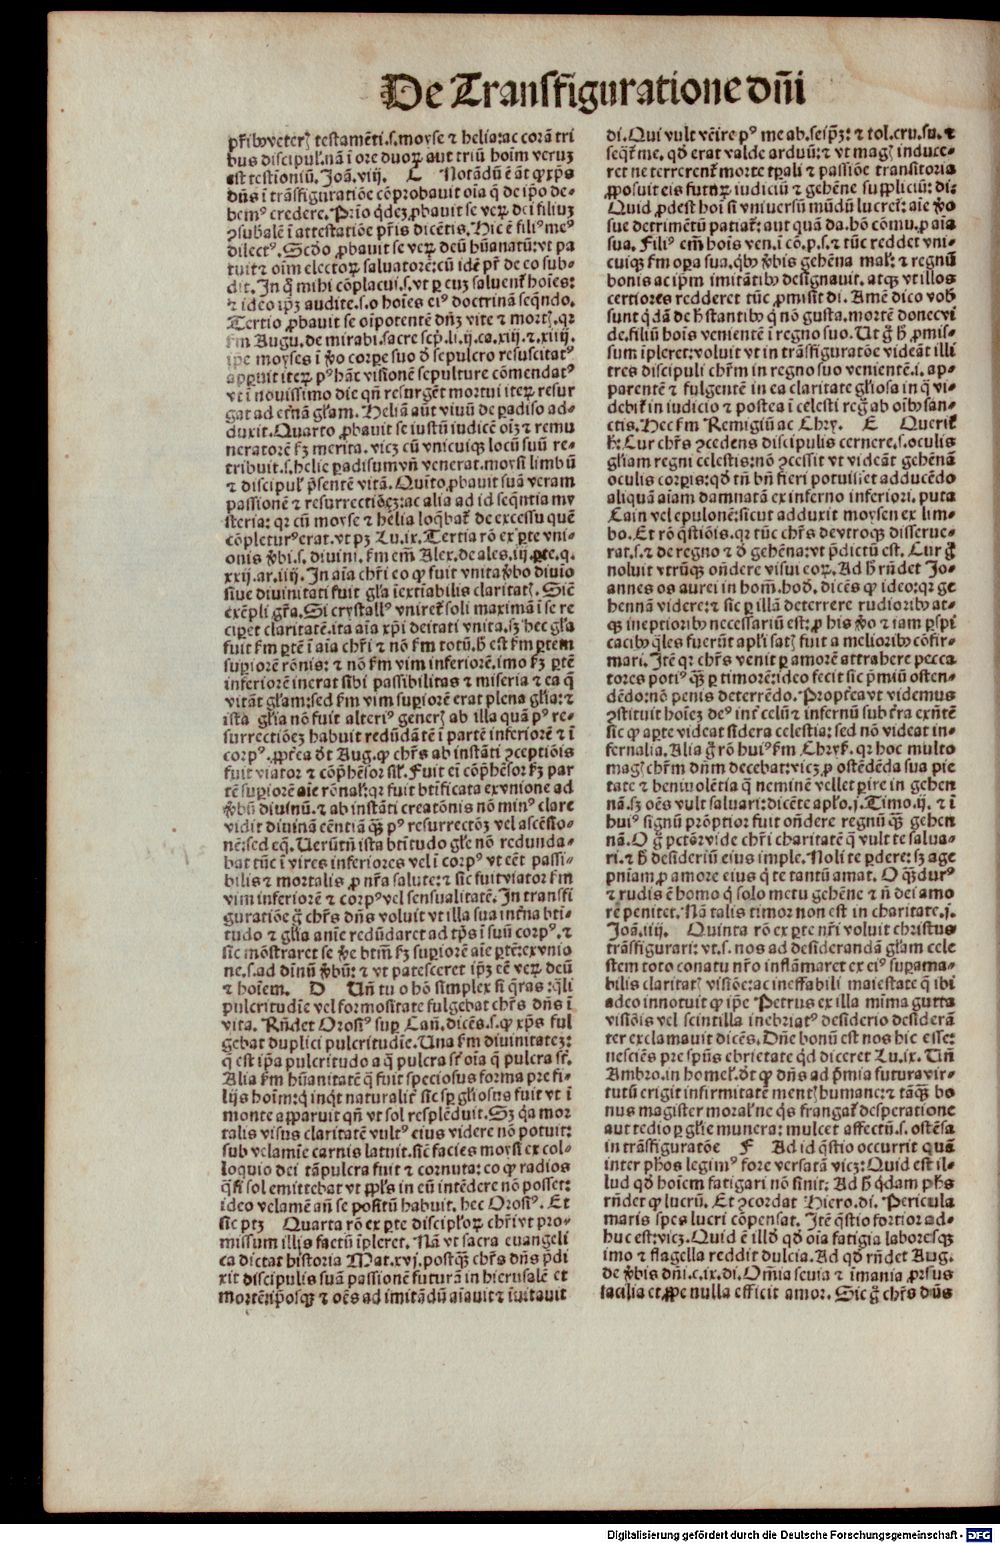 De Transfiguratione dñi
pr̄ibꝰ veterꝭ testamẽti.s.moyse ⁊ helia:ac corã tri
bus discipul̓.nã ĩ ore duoꝝ aut triũ hoĩm veruʒ
est testioniũ. Joã.viij. C Notãdũ ẽ ãt ꝙ xp̃s
dñs ĩ trãsfiguratiõe cõprobauit oĩa q̃ de ip̃o de-
bemꝰ credere. Prĩo q̇deʒ ꝓbauit se veꝝ dei filiuʒ
ꝯsubalẽ ĩ attestatiõe pr̃is dicẽtis. Hic ẽ filiꝰ meꝰ
dilectꝰ. Scd̃o ꝓbauit se veꝝ deũ hũanatũ: vt pa
tuit ⁊ oĩm electoꝝ saluatorẽ: cũ idẽ pr̃ de eo sub-
dit. In q̃ mihi cõplacui.s.vt ꝑ euʒ saluent̃ hoĩes:
⁊ ideo ip̃ʒ audite.s.o hoĩes eiꝰ doctrinã seq̃ndo.
Tertio ꝓbauit se oĩpotentẽ dñʒ vite ⁊ mortꝭ. qꝛ
ẜm Augu. de mirabi. sacre scp̃. li.ij.ca.xiij.⁊.xiiij.
ip̃e moyses ĩ ꝟo corꝑe suo d̓ sepulcro resuscitatꝰ
apparuit iteꝝ pꝰ hãc visionẽ sepulture cõmendatꝰ
vt ĩ nouissimo die qñ resurgẽt mortui iteꝝ resur
gat ad et̃nã gl̃am. Heliã aũt viuũ de ꝑadiso ad-
duxit. Quarto ꝓbauit se iustũ iudicẽ oĩʒ ⁊ remu
neratorẽ ẜʒ merita. vicʒ cũ vnicuiqʒ locũ suũ re-
tribuit.s.helie ꝑadisum vñ venerat. moysi limbũ
⁊ discipul̓ p̃sentẽ vitã. Quĩto ꝓbauit suã veram
passionẽ ⁊ resurrectiõeʒ: ac alia ad id seq̃ntia my
steria: qꝛ cũ moyse ⁊ helia loq̃bat̃ de excessu quẽ
cõpleturꝰ erat. vt pʒ Lu.ix. Tertia rõ ex ꝑte vni-
onis ꝟbi.s.diuini. ẜm em̃ Alex. de ales.iij ꝑte.q.
xxij.ar.iiij. In aĩa chr̃i eo ꝙ fuit vnita ꝟbo diuĩo
siue diuinitati fuit gl̃a ĩextiabilis claritatꝭ. Sicẽ
exẽpli gr̃a. Si crystallꝰ vniret̃ soli maximã ĩ se re
ciꝑet claritatẽ. ita aĩa xp̃i deitati vnita. sʒ hec gl̃a
fuit ẜm ꝑtẽ ĩ aĩa chr̃i ⁊ nõ ẜm totũ. h̃ est ẜm ꝑtem
suꝑiorẽ rõnis: ⁊ nõ ẜm vim inferiorẽ. imo ẜʒ ꝑtẽ
inferiorẽ inerat sibi passibilitas ⁊ miseria ⁊ ea q̃
vitãt gl̃am: sed ẜm vim suꝑiorẽ erat plena gl̃ia: ⁊
ista gl̃ia nõ fuit alteriꝰ generꝭ ab illa quã pꝰ re-
surrectiõeʒ habuit redũdãtẽ ĩ partẽ inferiorẽ ⁊ ĩ
corpꝰ. ꝓpt̃ea d̓t Aug. ꝙ chr̃s ab instãti ꝯceptiõis
fuit viator ⁊ cõp̃hẽsor sil̓. Fuit eĩ cõp̃hẽsor ẜʒ par
tẽ suꝑiorẽ aĩe rõnal̓: qꝛ fuit btificata ex vnione ad
ꝟbũ diuinũ. ⁊ ab instãti creatõnis nõ minꝰ clare
vidit diuinã eẽntiã q̃ʒ pꝰ resurrectõʒ vel ascẽsio-
nẽ: sed eq̃. Verũtñ ista btĩtudo gl̃e nõ redunda-
bat tũc ĩ vires inferiores vel ĩ corpꝰ vt eẽt passi-
bilis ⁊ mortalis ꝓ nr̃a salute: ⁊ sic fuit viator ẜm
vim inferiorẽ ⁊ corpꝰ vel sensualitatẽ. In transfi
guratiõe g̃ chr̃s dñs voluit vt illa sua int̃na bti-
tudo ⁊ gl̃ia anĩe redũdaret ad tp̃s ĩ suũ corpꝰ. ⁊
sic mõstraret se ꝟe btm̃ ẜʒ suꝑiorẽ aĩe ꝑtẽ: ex vnio
ne.s.ad diñũ ꝟbũ: ⁊ vt patesceret ip̃ʒ eẽ veꝝ deũ
⁊ hoĩem. D Uñ tu o hõ simplex si q̃ras: q̃li
pulcritudĩe vel formositate fulgebat chr̃s dñs ĩ
vita. Rñdet Orosiꝰ suꝑ Cañ. dicẽs.s.ꝙ xp̃s ful
gebat duplici pulcritudĩe. Una ẜm diuinitateʒ:
q̃ est ip̃a pulcritudo a q̃ pulcra st̃ oĩa q̃ pulcra st̃.
Alia ẜm hũanitatẽ q̃ fuit speciosus forma pre fi-
lijs hoĩm: q̇ inq̇t naturalit̃ sic sꝑ gl̃iosus fuit vt ĩ
monte apparuit qñ vt sol resplẽduit. Sʒ q̇a mor
talis visus claritatẽ vultꝰ eius videre nõ potuit:
sub velamĩe carnis latuit. sicẽ facies moysi ex col-
loquio dei tãpulcra fuit ⁊ cornuta: eo ꝙ radios
q̃si sol emittebat vt ppl̃s in eũ intẽdere nõ posset:
ideo velamẽ añ se positũ habuit. hec Orosiꝰ. Et
sic ptʒ Quarta rõ ex ꝑte discipl̃oꝝ chr̃i vt pro-
missum illis factũ ĩpleret. Nã vt sacra euangeli
ca dictat historia Mat.xvj. postq̃ʒ chr̃s dñs p̃di
xit discipulis suã passionẽ futurã in hierusalẽ et
mortẽ: ip̃osqʒ ⁊ oẽs ad imitãdũ aĩauit ⁊ ĩuitauit
di. Qui vult vẽire pꝰ me ab. seip̃ʒ: ⁊ tol. cru. su. ⁊
seq̃t̃ me. qd̓ erat valde arduũ: ⁊ vt magꝭ induce-
ret ne terrerent̃ morte tꝑali ⁊ passiõe transitoria
ꝓposuit eis futuꝝ iudiciũ ⁊ gehẽne suppliciũ: di:
Quid ꝓdest hoĩ si vniuersũ mũdũ lucret̃: aĩe ꝟo
sue detrimẽtũ patiat̃: aut quã da. hõ cõmu. ꝓ aĩa
sua. Filiꝰ em̃ hoĩs ven. ĩ cõ. p. s. ⁊ tũc reddet vni-
cuiqʒ ẜm oꝑa sua. q̇bꝰ ꝟbis gehẽna mal̓: ⁊ regnũ
bonis ac ip̃m imitãtibꝰ designauit. atqʒ vt illos
certiores redderet tũc ꝓmisit di. Amẽ dico vob̓
sunt q̇dã de h̓ stantibꝰ q̇ nõ gusta. mortẽ donec vi
de. filiũ hoĩs venientẽ ĩ regno suo. Ut g̃ h̓ ꝓmis-
sum ĩpleret: voluit vt in trãsfiguratõe videãt illi
tres discipuli chr̃m in regno suo venientẽ.i.ap-
parentẽ ⁊ fulgentẽ in ea claritate gl̃iosa in q̃ vi-
debit̃ in iudicio ⁊ postea ĩ celesti reg̃ ab oĩbꝰ san-
ctis. Hec ẜm Remigiũ ac Chry. E Querit̃
h̓: Cur chr̃s ꝯcedens discipulis cernere.s.oculis
gl̃iam regni celestis: nõ ꝯcessit vt videãt gehẽnã
oculis corꝑis: qd̓ tñ bñ fieri potuisset adducẽdo
aliquã aĩam damnatã ex inferno inferiori. puta
Cain vel epulonẽ: sicut adduxit moysen ex lim-
bo. Et rõ q̃stiõis. qꝛ tũc chr̃s de vtroqʒ disserue-
rat.s.⁊ de regno ⁊ d̓ gehẽna: vt p̃dictũ est. Cur g̃
noluit vtrũqʒ oñdere visui eoꝝ. Ad h̓ rñdet Jo-
annes os aurei in hom̃. hoc̃. dicẽs ꝙ ideo: qꝛ ge
hennã videre: ⁊ sic ꝑ illã deterrere rudioribꝰ at-
qʒ ineptioribꝰ necessariũ est: ꝓ his ꝟo ⁊ iam ꝑspi
cacibꝰ q̃les fuerũt apl̃i satꝭ fuit a melioribꝰ cõfir-
mari. Itẽ qꝛ chr̃s venit ꝑ amorẽ attrahere pecca
tores potiꝰ q̃ʒ ꝑ timorẽ: ideo fecit sic p̃miũ osten-
dẽdo: nõ penis deterrẽdo. Propt̃ea vt videmus
ꝯstituit hoĩeʒ deꝰ int̃ celũ ⁊ infernũ sub t̃ra exñtẽ
sic ꝙ aꝑte videat sidera celestia: sed nõ videat in-
fernalia. Alia g̃ rõ huiꝰ ẜm Chryẜ. qꝛ hoc multo
magꝭ chr̃m dñm decebat: vicʒ ꝓ ostẽdẽda sua pie
tate ⁊ beniuolẽtia q̃ neminẽ vellet ꝑire in gehen
nã. sʒ oẽs vult saluari: dicẽte apl̃o.j.Timo.ij. ⁊ ĩ
huiꝰ signũ prõptior fuit oñdere regnũ q̃ʒ gehen
nã. O g̃ pctõr vide chr̃i charitatẽ q̃ vult te salua-
ri. ⁊ h̓ desideriũ eius imple. Noli te ꝑdere: sʒ age
pñiam ꝓ amore eius q̇ te tantũ amat. O q̃ʒ durꝰ
⁊ rudis ẽ homo q̇ solo metu gehẽne ⁊ ñ dei amo
rẽ penitet. Nã talis timor non est in charitate.j.
Joã.iiij. Quinta rõ ex ꝑte nr̃i voluit christus
trãsfigurari: vt.s.nos ad desiderandã gl̃am cele
stem toto conatu nr̃o inflãmaret ex eiꝰ suꝑama-
bilis claritatꝭ visiõe: ac ineffabili maiestate q̃ ibi
adeo innotuit ꝙ ip̃e Petrus ex illa mĩma gutta
visiõis vel scintilla inebriatꝰ desiderio desiderã
ter exclamauit dicẽs. Dñe bonũ est nos hic esse:
nesciẽs pre sp̃us ebrietate q̇d diceret Lu.ix. Uñ
Ambro. in homel̓. d̓t ꝙ dñs ad p̃mia futura vir-
tutũ erigit infirmitatẽ mentꝭ humane: ⁊ tãq̃ʒ bo
nus magister moral̓ ne q̇s frangat̃ desperatione
aut tedio ꝑ gl̃ie munera: mulcet affectũ.s.ostẽsa
in trãsfiguratõe F Ad id q̃stio occurrit quã
inter ph̓os legimꝰ fore versatã vicʒ: Quid est il-
lud qd̓ hoĩem fatigari nõ sinit: Ad h̓ q̇dam ph̓s
rñdet ꝙ lucrũ. Et ꝯcordat Hiero. di. Pericula
maris spes lucri cõpensat. Itẽ q̃stio fortior ad-
huc est: vicʒ. Quid ẽ illd̓ qd̓ oĩa fatigia laboresqʒ
imo ⁊ flagella reddit dulcia. Ad qd̓ rñdet Aug.
de ꝟbis dñi.c.ix.di. Om̃ia seuia ⁊ ĩmania ꝓrsus
facilia et ꝓpe nulla efficit amor. Sic g̃ chr̃s dñs
Digitalisierung gefördert durch die Deutsche Forschungsgemeinschaft - DFG